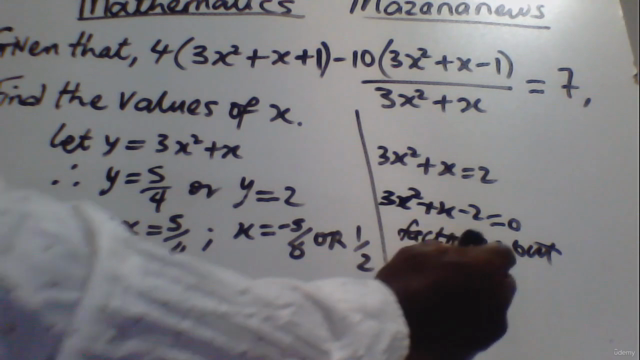 Mathematics Mazananews
Given that, 4(3x²+x+1)-10(3x²+x-1)/3x²+x = 7,
Find the values of x.
let y = 3x²+x
∴ y = 5/4 or y = 2
x = 5/4 ; x = -5/6 OR 1/2
3x²+x = 2
3x²+x-2=0
but
Udemy